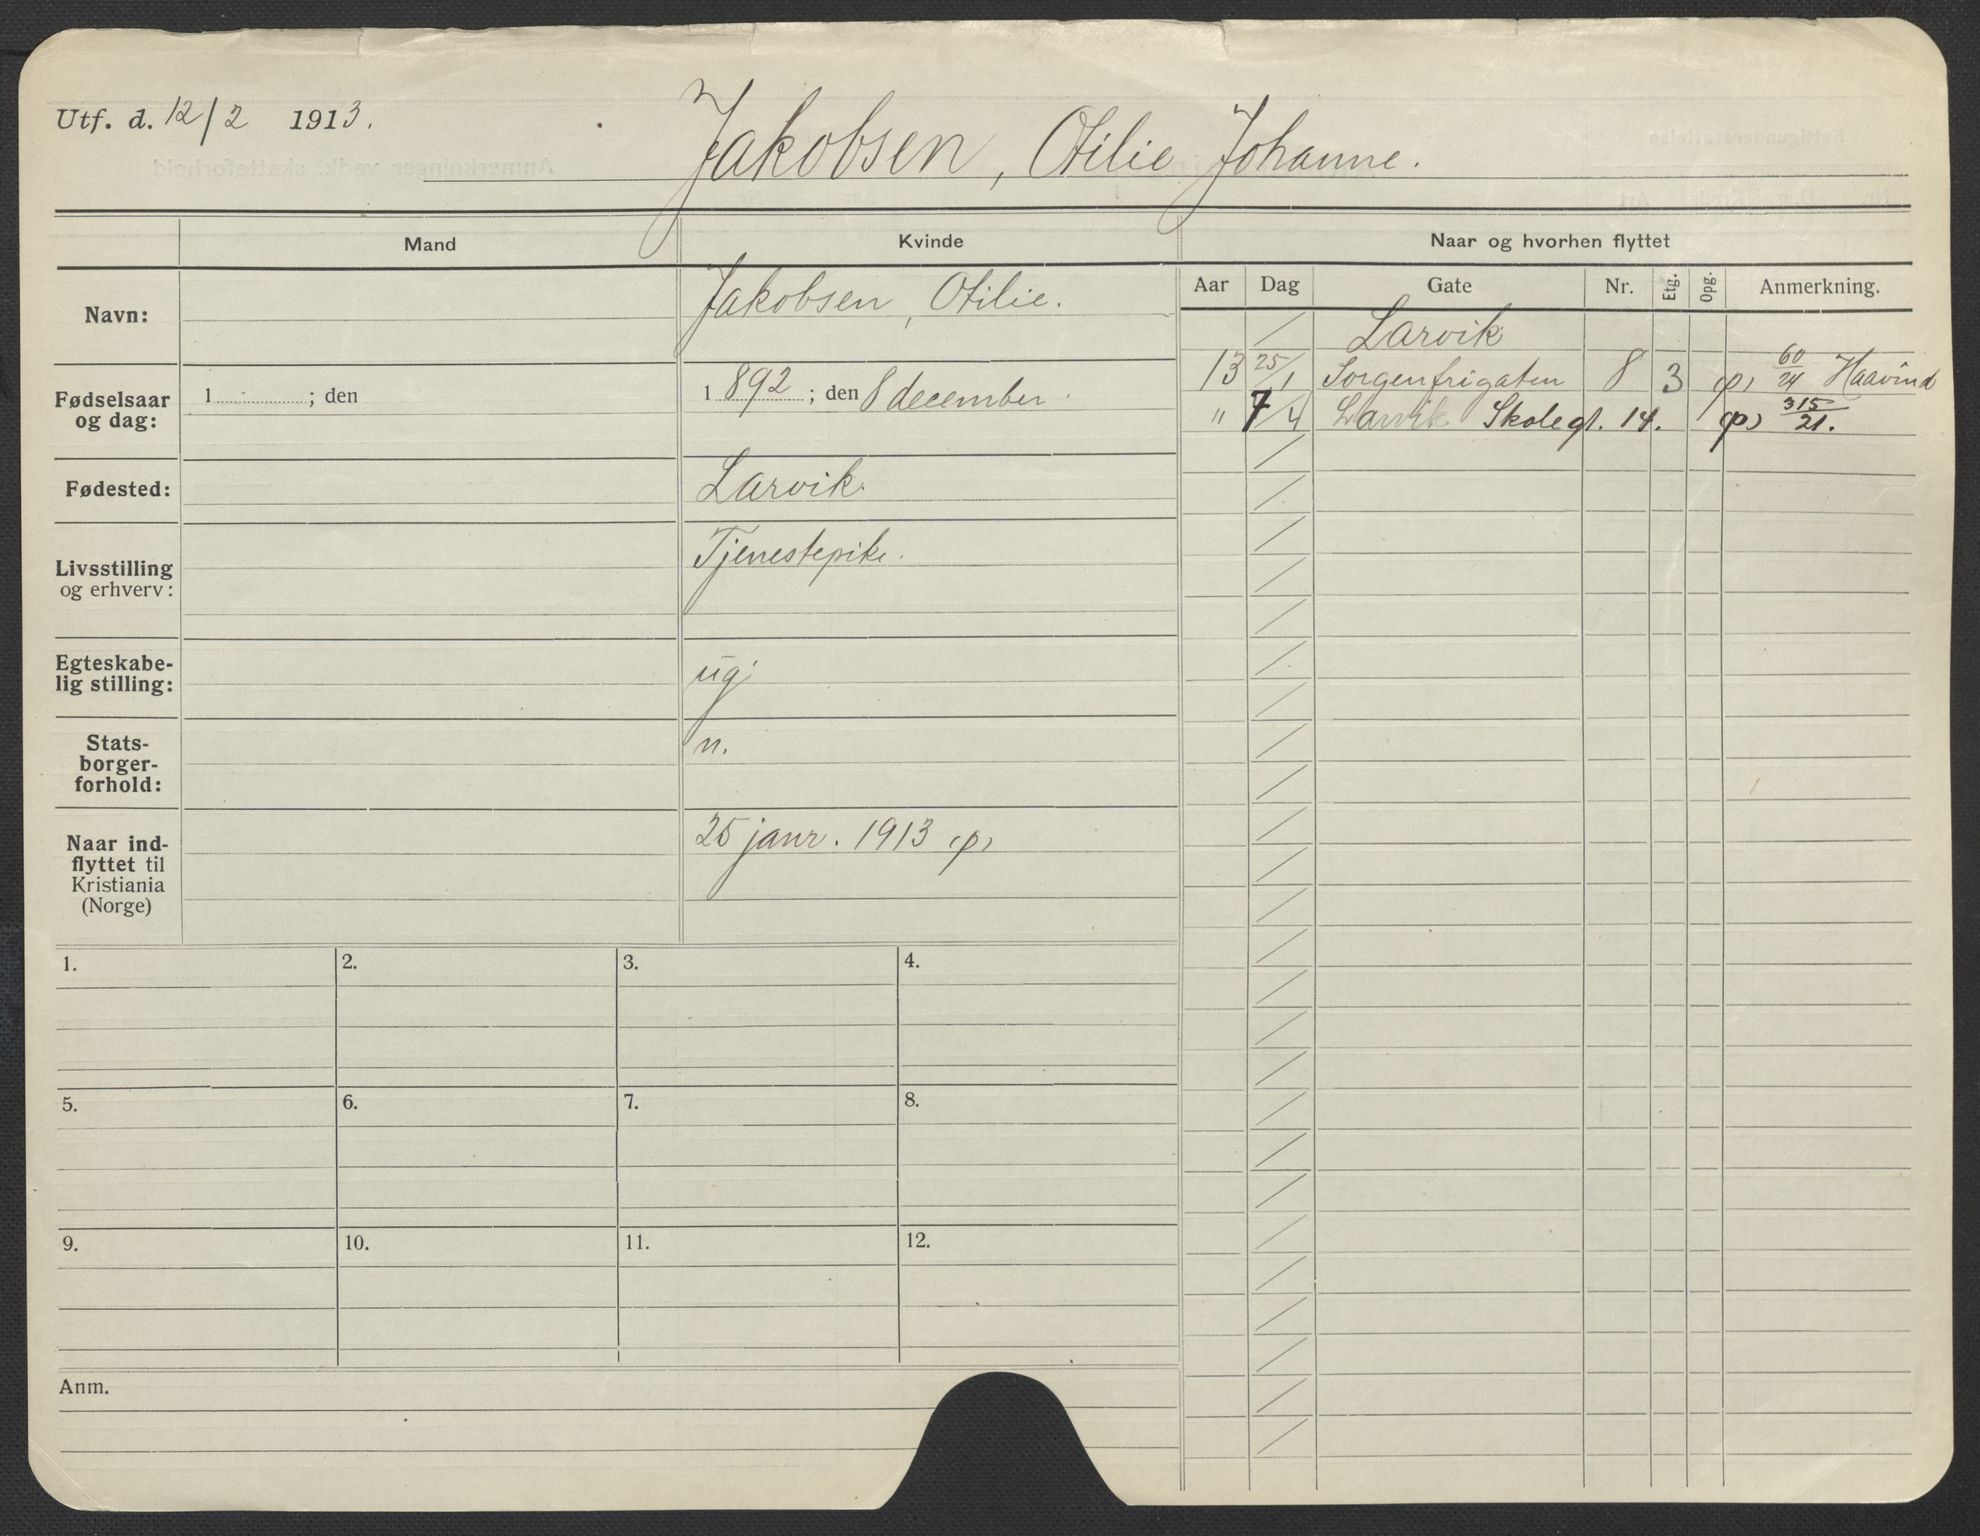 Utf. d. 12/2 1913.
Jakobsen, Otilie Johanne.
Mand
Kvinde
Naar og hvorhen flyttet
Navn:
Jakobsen, Otilie.
Fødselsaar og dag:
1 ; den
1892 ; den 8 december.
Fødested:
Larvik.
Livsstilling og erhverv:
Tjenestepike.
Egteskabe-
lig stilling:
ug.
Stats-
borger-
forhold:
n.
Naar ind-
flyttet til
Kristiania
(Norge)
25 janr. 1913 (p)
Aar Dag Gate Nr. Etg. Opg. Anmerkning.
/ Larvik
13 25/1 Sorgenfrigaten 8 3 (p) 60/24 Haavind
" 7/4 Larvik Skolegt. 14. (p) 315/21.
1. 2. 3. 4.
5. 6. 7. 8.
9. 10. 11. 12.
Anm.